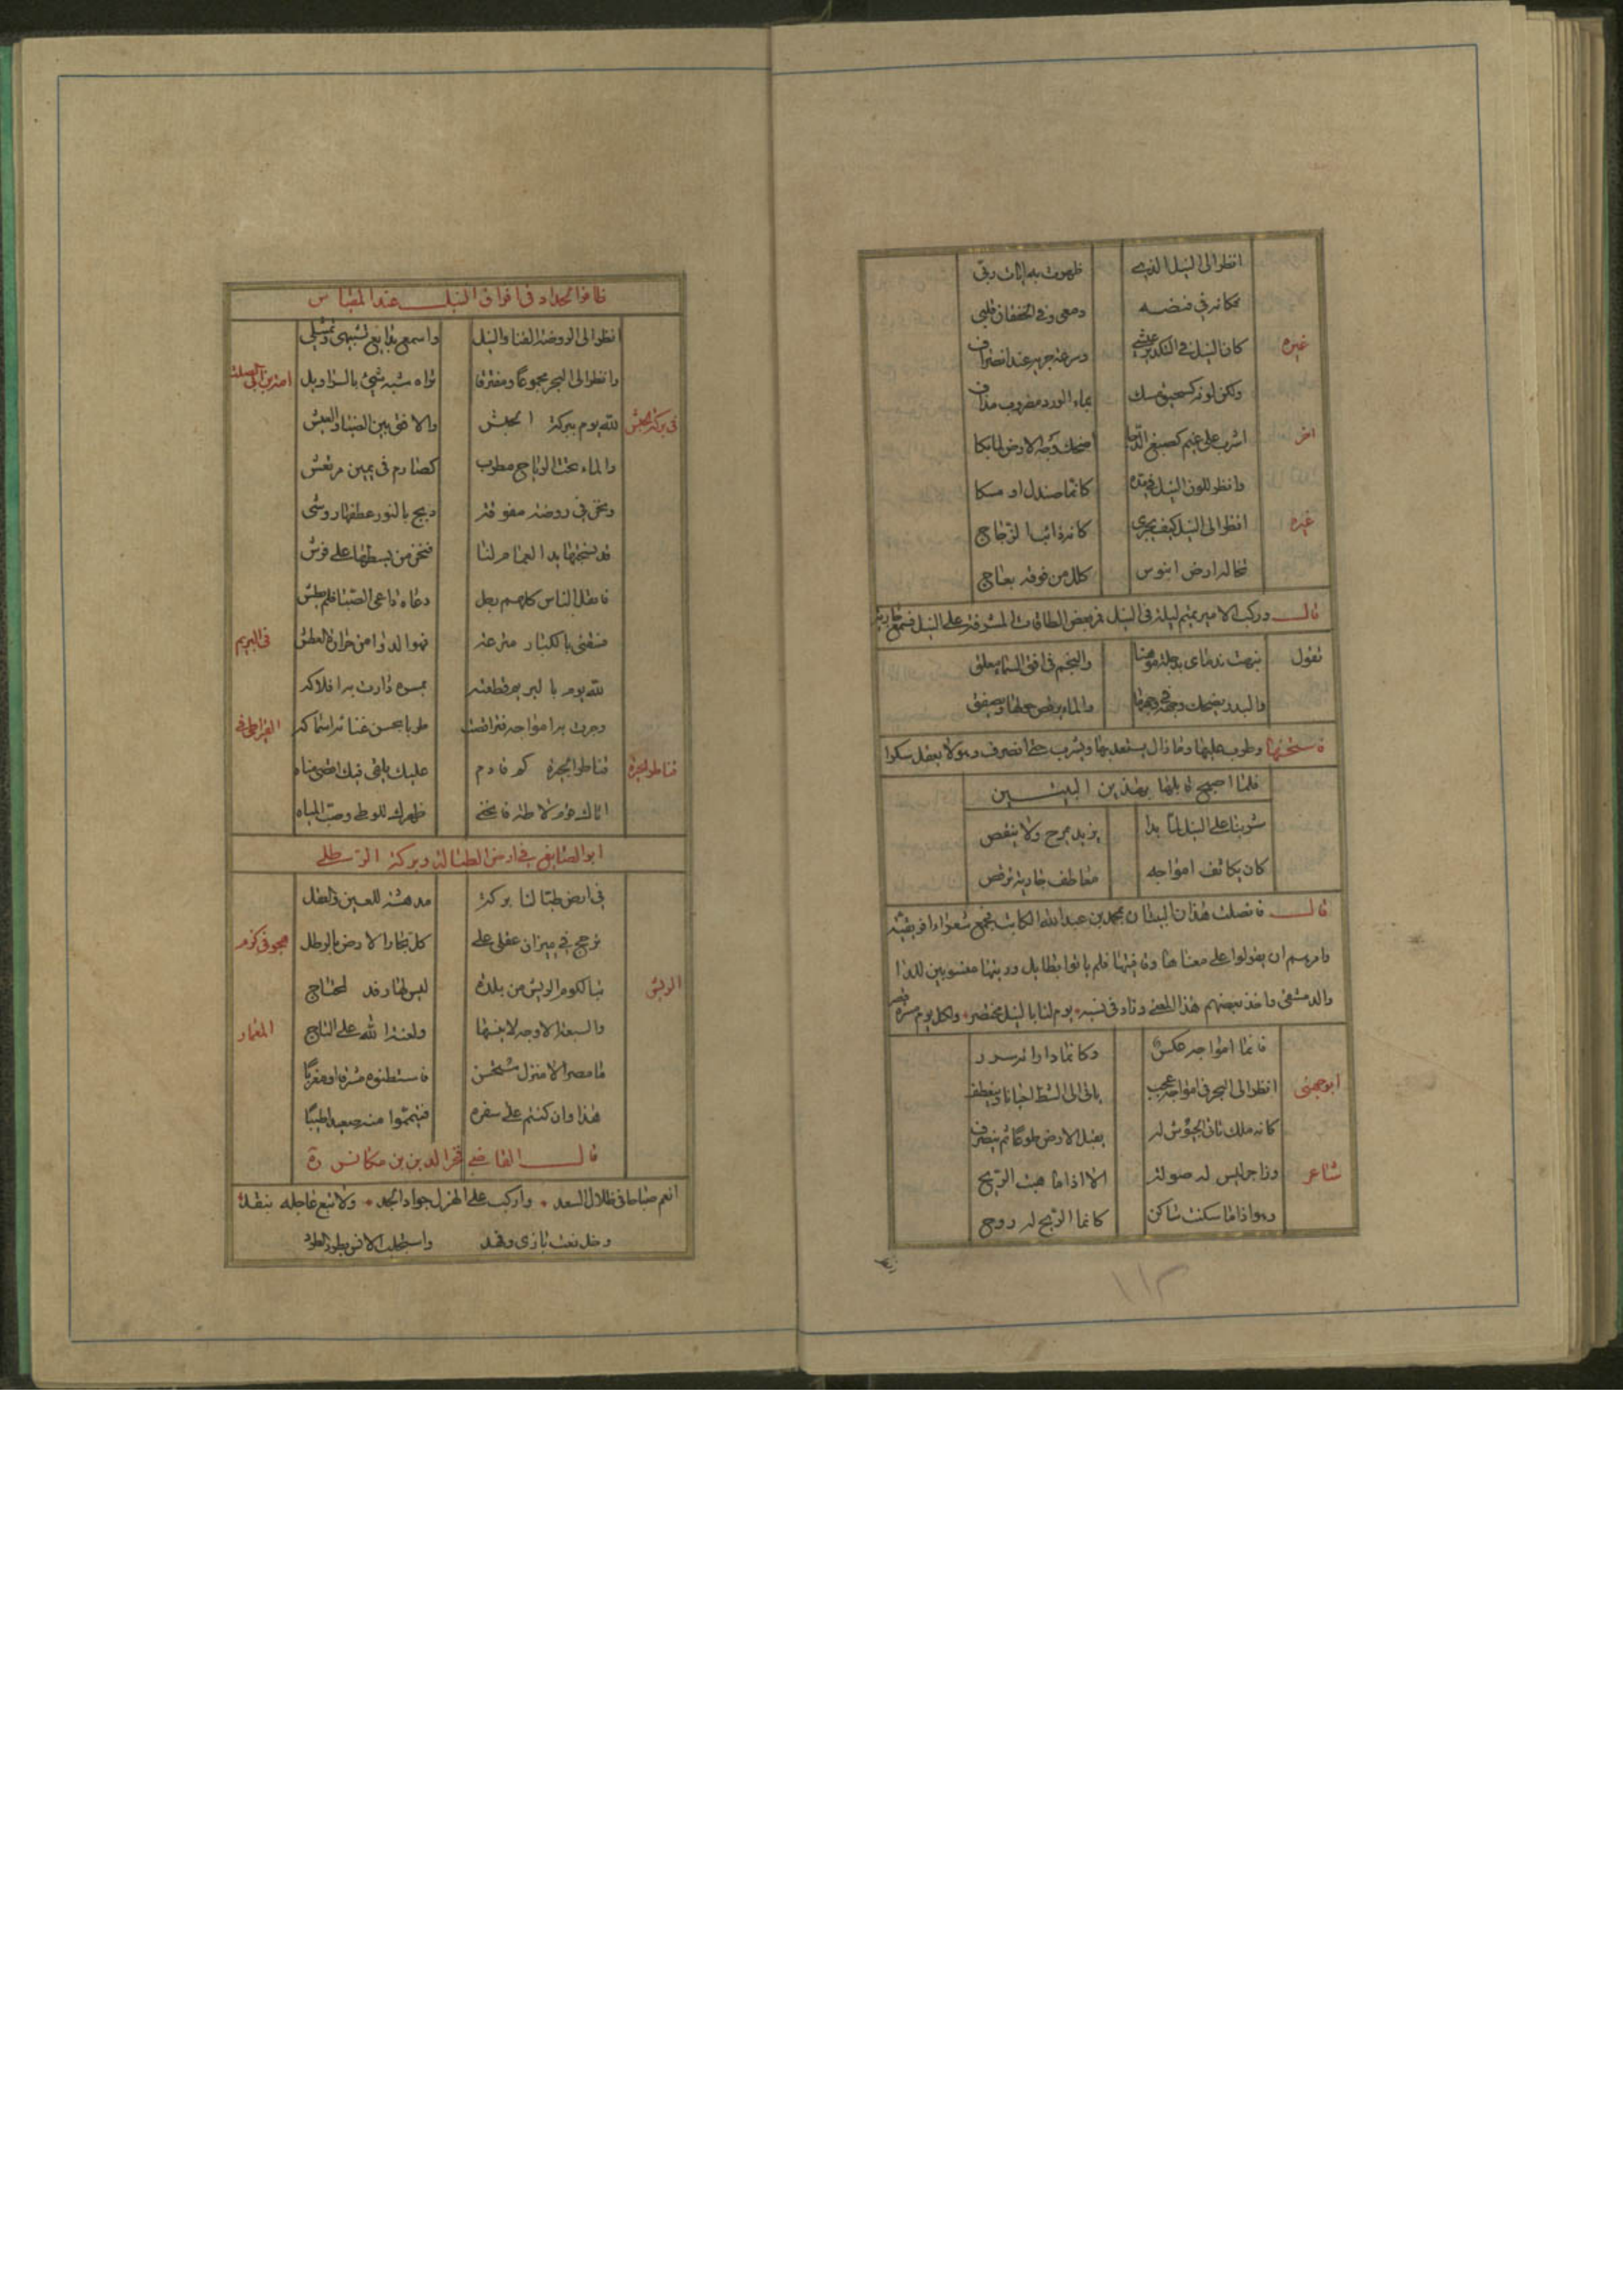 انظر الى النيل الذي ظهرت به ايات ربي
فكانه في فيضه دمعي وفي الخفقان قلبي
غيره كان النيل في التكدير عيشي وسرعة جريه عند انصراف
ولكن لونه كسحيق مسك بماء الورد مضروب مذاف
اخر اشرب على غيم كصبغ الدجا اضحك وجه الارض لما بكا
وانظر للون النيل في مده كانما صندل او مسكا
غيره انظر الى النيل كيف يجري كانه ذائب الزجاج
تخاله ارض ابنوس كلل من فوقه بعاج
قال وركب الامير تميم ليلة في النيل فمر ببعض الطاقات المشرفة على النيل فسمع جارية
تقول نبهت ندماني بدجلة موهنا والنجم في افق السماء معلق
والبدر يضحك وجهه في وجهها والماء يرقص حولها ويصفق
فاستحسنها وطرب عليها وما زال يستعيدها ويشرب حتى انصرف وهو لا يعقل سكرا
فلما اصبح قابلها بهذين البيتين
شربنا على النيل لما بدا بزيد يموج ولا ينقص
كان تكاثف امواجه معاطف جارية ترقص
قال فاتصلت هذان البيتان بمحمد بن عبد الله الكاتب فجمع شعراء افريقية
وامرهم ان يقولوا على معناها وقافيتها فلم ياتوا بطايل
والدمشقي واخذ بعضهم هذا المعنى وزاد فيه يوم لنا بالنيل مختصر ولكل يوم مسرة قصر
فانما امواجه عكن وكانما داراته سرر
انظر الى البحر في امواجه عجب ياتي الى الشط احيانا وينعطف
كانه ملك تاتي الجيوش له يقبل الارض طوعا ثم ينصرف
شاعر وزاجر ليس له صولة الا اذا ما هبت الريح
وهو اذا ما سكنت ساكن كانما الريح له روح
١١٣
ظافر الحداد في افراق النيل عند المقياس
انظر الى الروضة الغنا والنيل واسمع بدايع تشبيهي وتمثيلي
وانظر الى البحر مجموعا ومفترقا تراه شبه شي بالسراويل امية بن ابي الصلت
في بركة الحبش لله يوم ببركة الحبش والافق بين الضياء والغبش
والماء تحت الرياح مضطرب كصارم في يمين مرتعش
ونحن في روضة مفوفة دبج بالنور عطفها ووشي
قد نسجتها يد الغمام لنا فنحن من بسطها على فرش
فاثقل الناس كلهم رجل دعاه داعي الصبا فلم يطش
فسقني بالكبار مترعة فهو الدوا من حرارة العطش في البريم
لله يوم بالبريم قطعته بمسرة دارت به افلاكه
وجرت به امواجه فتراقصت طربا بحسن غنائه اسماكه القيراطي في
قناطر الجيزة قناطر الجيزة كم قادم عليك يلقى فيك اقصى مناه
اتاك قوم لاطة فانحنى ظهرك للوطي وصب المياه
ابو الصايغ في ارض الطبالة وبركة الرطلي
في ارض طبالتنا بركة مدهشة للعين والعقل
ترجح في ميزان عقلي على كل بحار الارض بالرطل هجو في كوم
الريش تبا لكوم الريش من بلدة ليس لها رفد لمحتاج
والسبعة الاوجه لا ينسها ولعنة الله على التاج المعمار
ما مصر الا منزل مستحسن فاستوطنوه مشرقا او مغربا
هذا وان كنتم على سفر به فتيمموا منه صعيدا طيبا
قال القاضي فخر الدين بن مكانس ره
انعم صباحا في ظلال السعد واركب على الهزل جواد الجد ولا تبع عاجله بنقد
واستجلب الانس بطرد الطرد